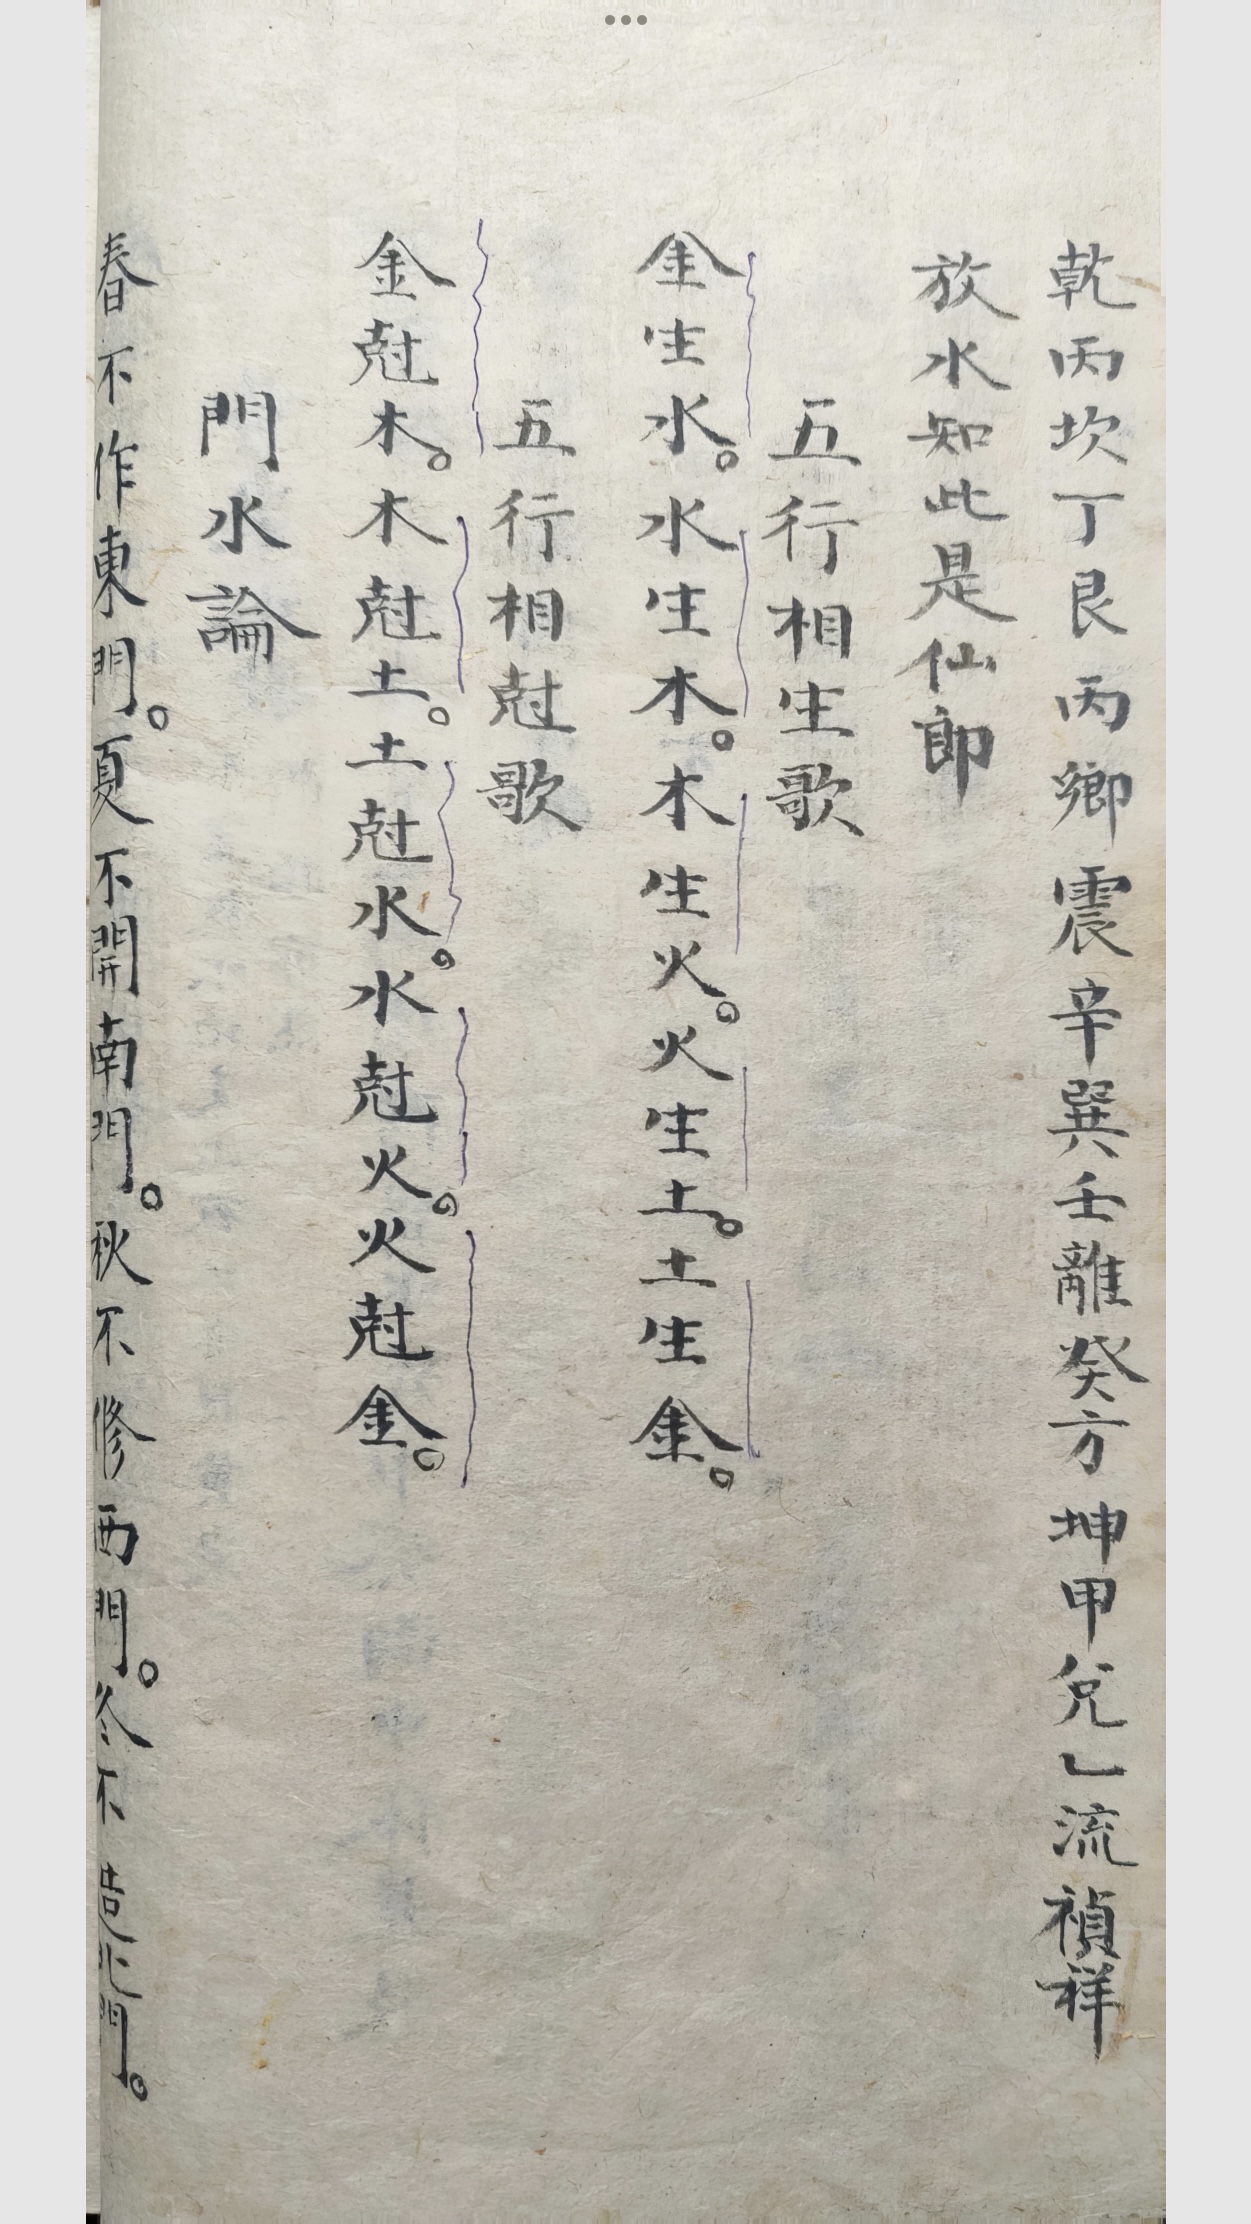 乾丙坎丁艮丙鄉震辛巽壬離癸方坤甲兌乚流禎祥
放水知此是仙郎
五行相生歌
金生水。水生木。木生火。火生土。土生金。
五行相尅歌
金尅木。木尅土。土尅水。水尅火。火尅金。
門水論
春不作東門。夏不開南門。秋不修西門。冬不造北門。